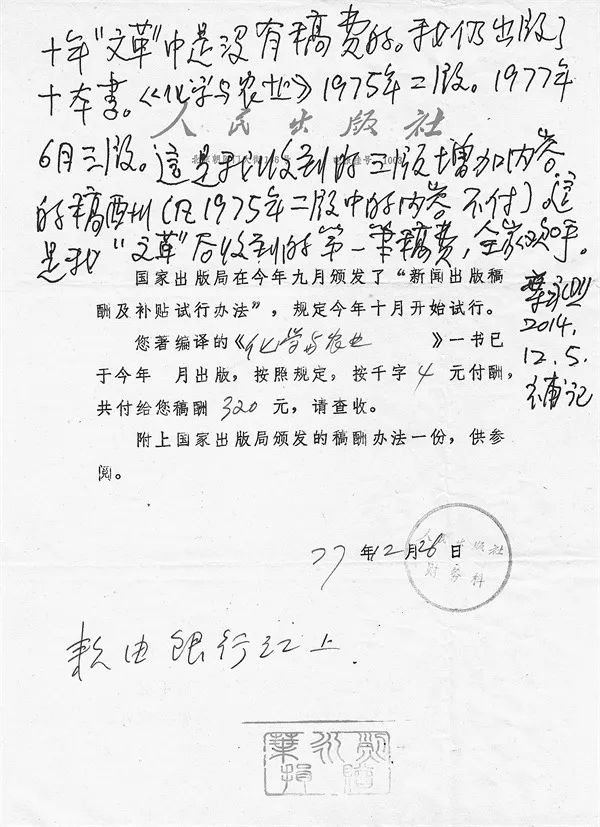 十年“文革”中是没有稿费的。我仍出版了
十本書。《化学与农业》1975年二版。1977年
人民出版社
6月三版。這是我收到的三版增加内容
的稿酬(但1975年二版中的内容不付)這
是我“文革”后收到的第一筆稿費,全家欢呼。
葉永烈
2014.
12.5.
补记
国家出版局在今年九月颁发了“新闻出版稿
酬及补贴试行办法”,规定今年十月开始试行。
您著编译的《化学与农业 》一书已
于今年 月出版,按照规定,按千字4元付酬,
共付给您稿酬320元,请查收。
附上国家出版局颁发的稿酬办法一份,供参
阅。
77年12月26日
人民出版社
财务科
款由银行汇上.
葉永烈
捐赠